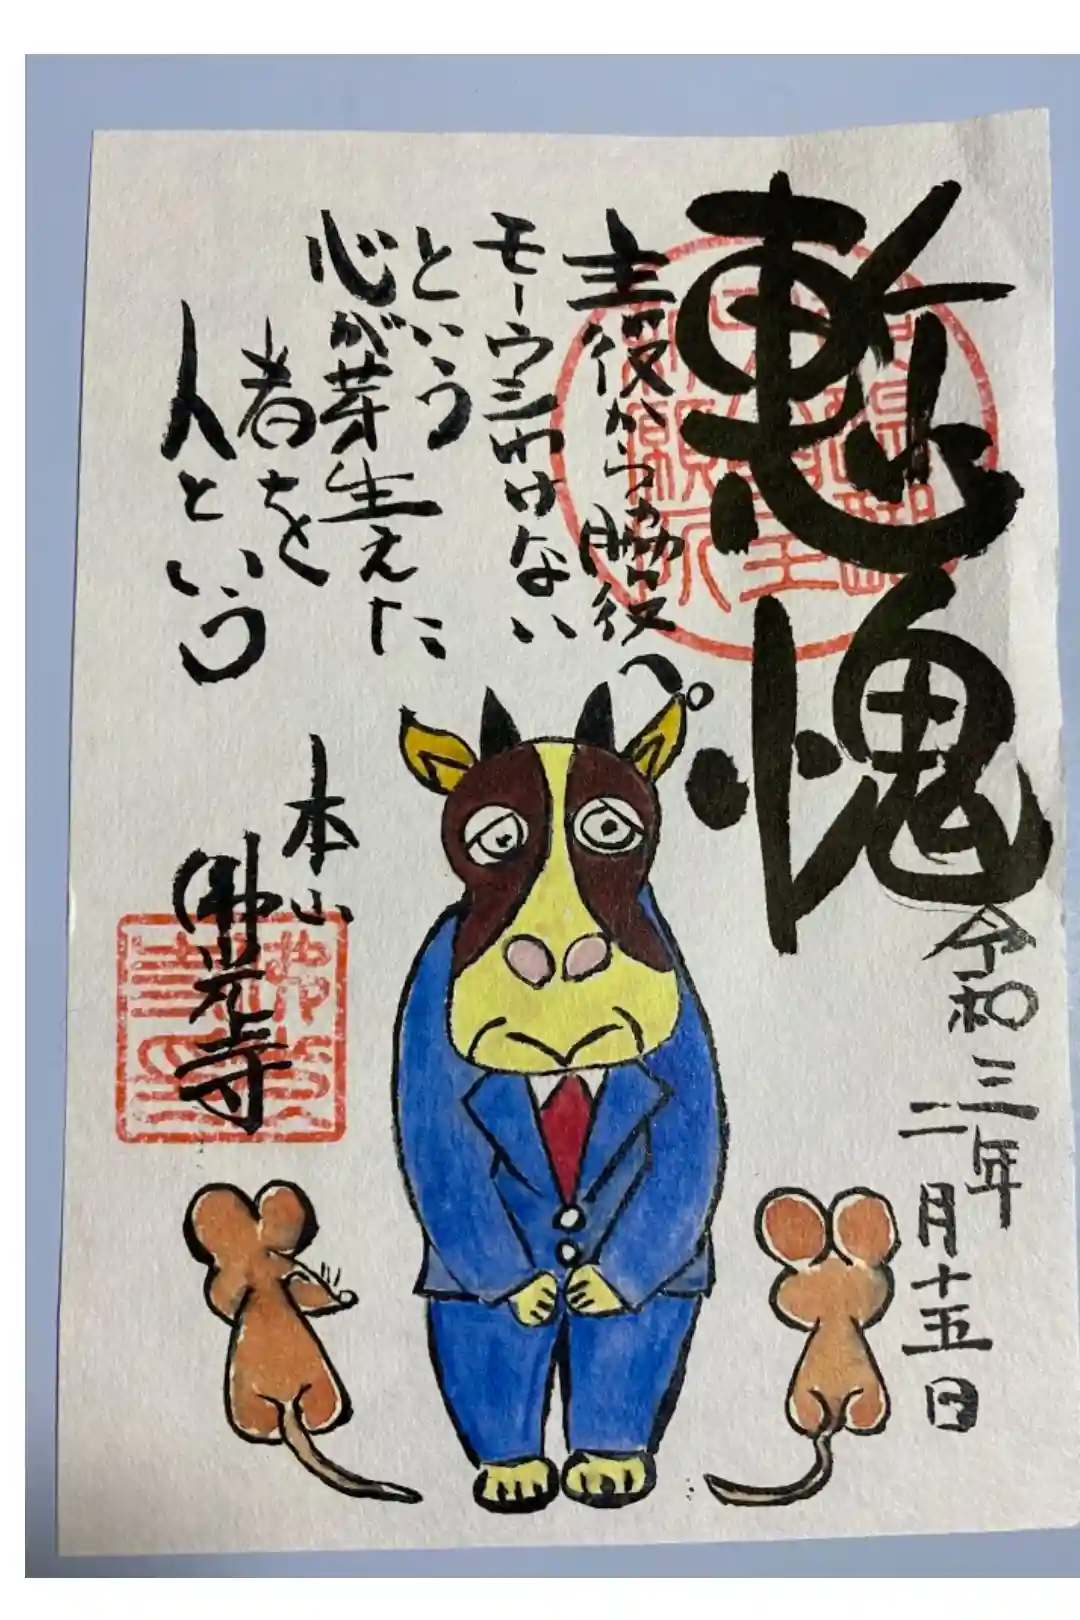 慙愧
令和三年
二月十五日
主役からの脇役へ。
モーウシわけない
という
心が芽生えた
者を
人という
本山
佛光寺